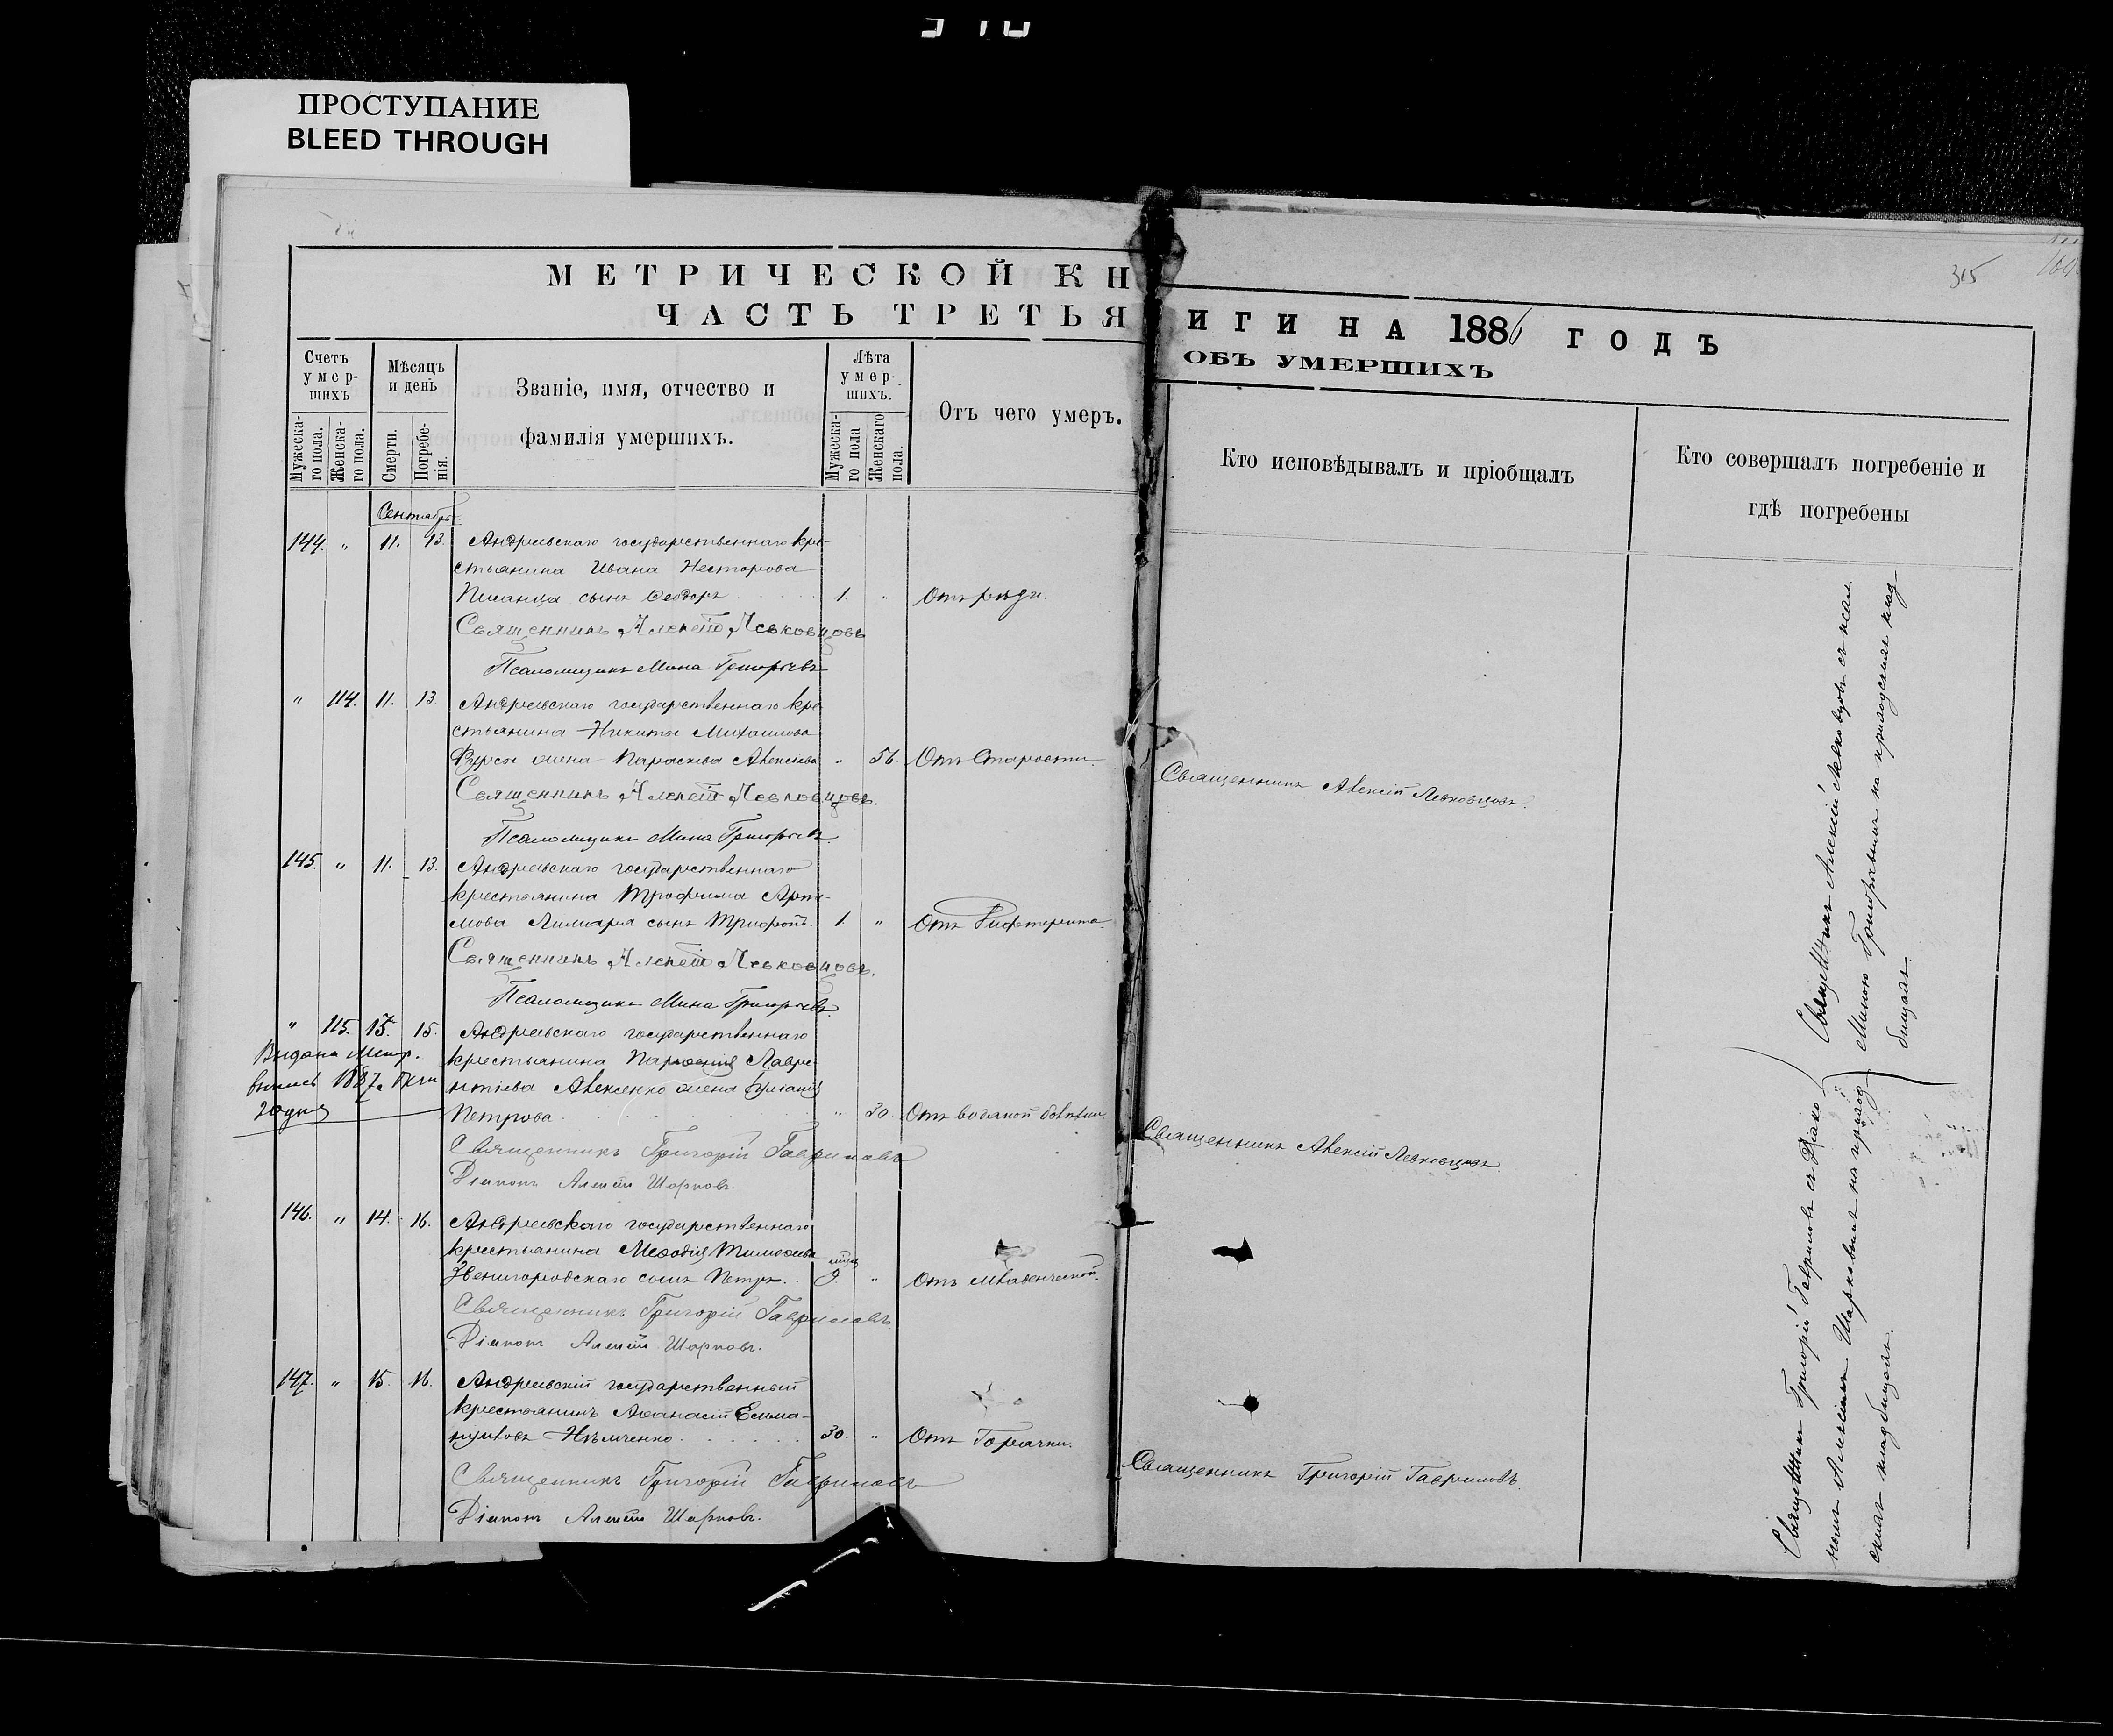 ПРОСТУПАНИЕ
BLEED THROUGH
315
МЕТРИЧЕСКОЙ КН
ИГИ НА 1886 ГОДЪ
ЧАСТЬ ТРЕТЬЯ
ОБЪ УМЕРШИХЪ
Счетъ умер-шихъ
Мужеска-го пола.
Женска-го пола.
Мѣсяцъ и день
Смерти.
Погребе-нія.
Званіе, имя, отчество и
фамилія умершихъ.
Лѣта умер-шихъ.
Мужеска-го пола
Женскаго пола.
Отъ чего умеръ.
Кто исповѣдывалъ и пріобщалъ
Кто совершалъ погребеніе и
гдѣ погребены
Сентябрь
144. " 11. 13. Андреевскаго государственнаго кре-
стьянина Ивана Несторова
сынъ Ѳеодоръ 1. "
Священникъ Алексѣй Левковцовъ
Псаломщикъ Мина Григорьевъ
" 114. 11. 13. Андреевскаго государственнаго кре-
стьянина Никиты Михаилова
Фурсы жена Параскева Алексѣева " 56. Отъ Старости. Священникъ Алексій Левковцовъ.
Священникъ Алексѣй Левковцовъ.
Псаломщикъ Мина Григорьевъ
145. " 11. 13. Андреевскаго государственнаго
крестьянина Трофима Арте-
мова Лимаря сынъ Трифонъ. 1. " Отъ Дифтерита.
Священникъ Алексѣй Левковцовъ.
Псаломщикъ Мина Григорьевъ
" 115. 13. 15. Андреевскаго государственнаго
Выдана Метр.
крестьянина Парѳенія Лавре-
выпись 1887.
нтіева Алексенко жена
Петрова " 30. Отъ водяной болѣзни Священникъ Алексій Левковцовъ
Священникъ Григорій Гавриловъ
Діаконъ Алексѣй Шарковъ.
146. " 14. 16. Андреевскаго государственнаго
крестьянина Меѳодія Тимоѳеева
Звенигородскаго сынъ Петръ 9. " Отъ младенческой.
Священникъ Григорій Гавриловъ
Діаконъ Алексѣй Шарковъ.
147. " 15. 16. Андреевскій государственный
крестьянинъ Аѳанасій Емма-
нуиловъ Нѣмченко 30. " Отъ Горячки. Священникъ Григорій Гавриловъ.
Священникъ Григорій Гавриловъ
Діаконъ Алексѣй Шарковъ.
Священникъ Алексій Левковцовъ съ псал.
Миною Григорьевымъ на приходскомъ клад-
бищахъ.
Священникъ Григорій Гавриловъ съ Діако-
номъ Алексѣемъ Шарковымъ на приход-
скихъ кладбищахъ.